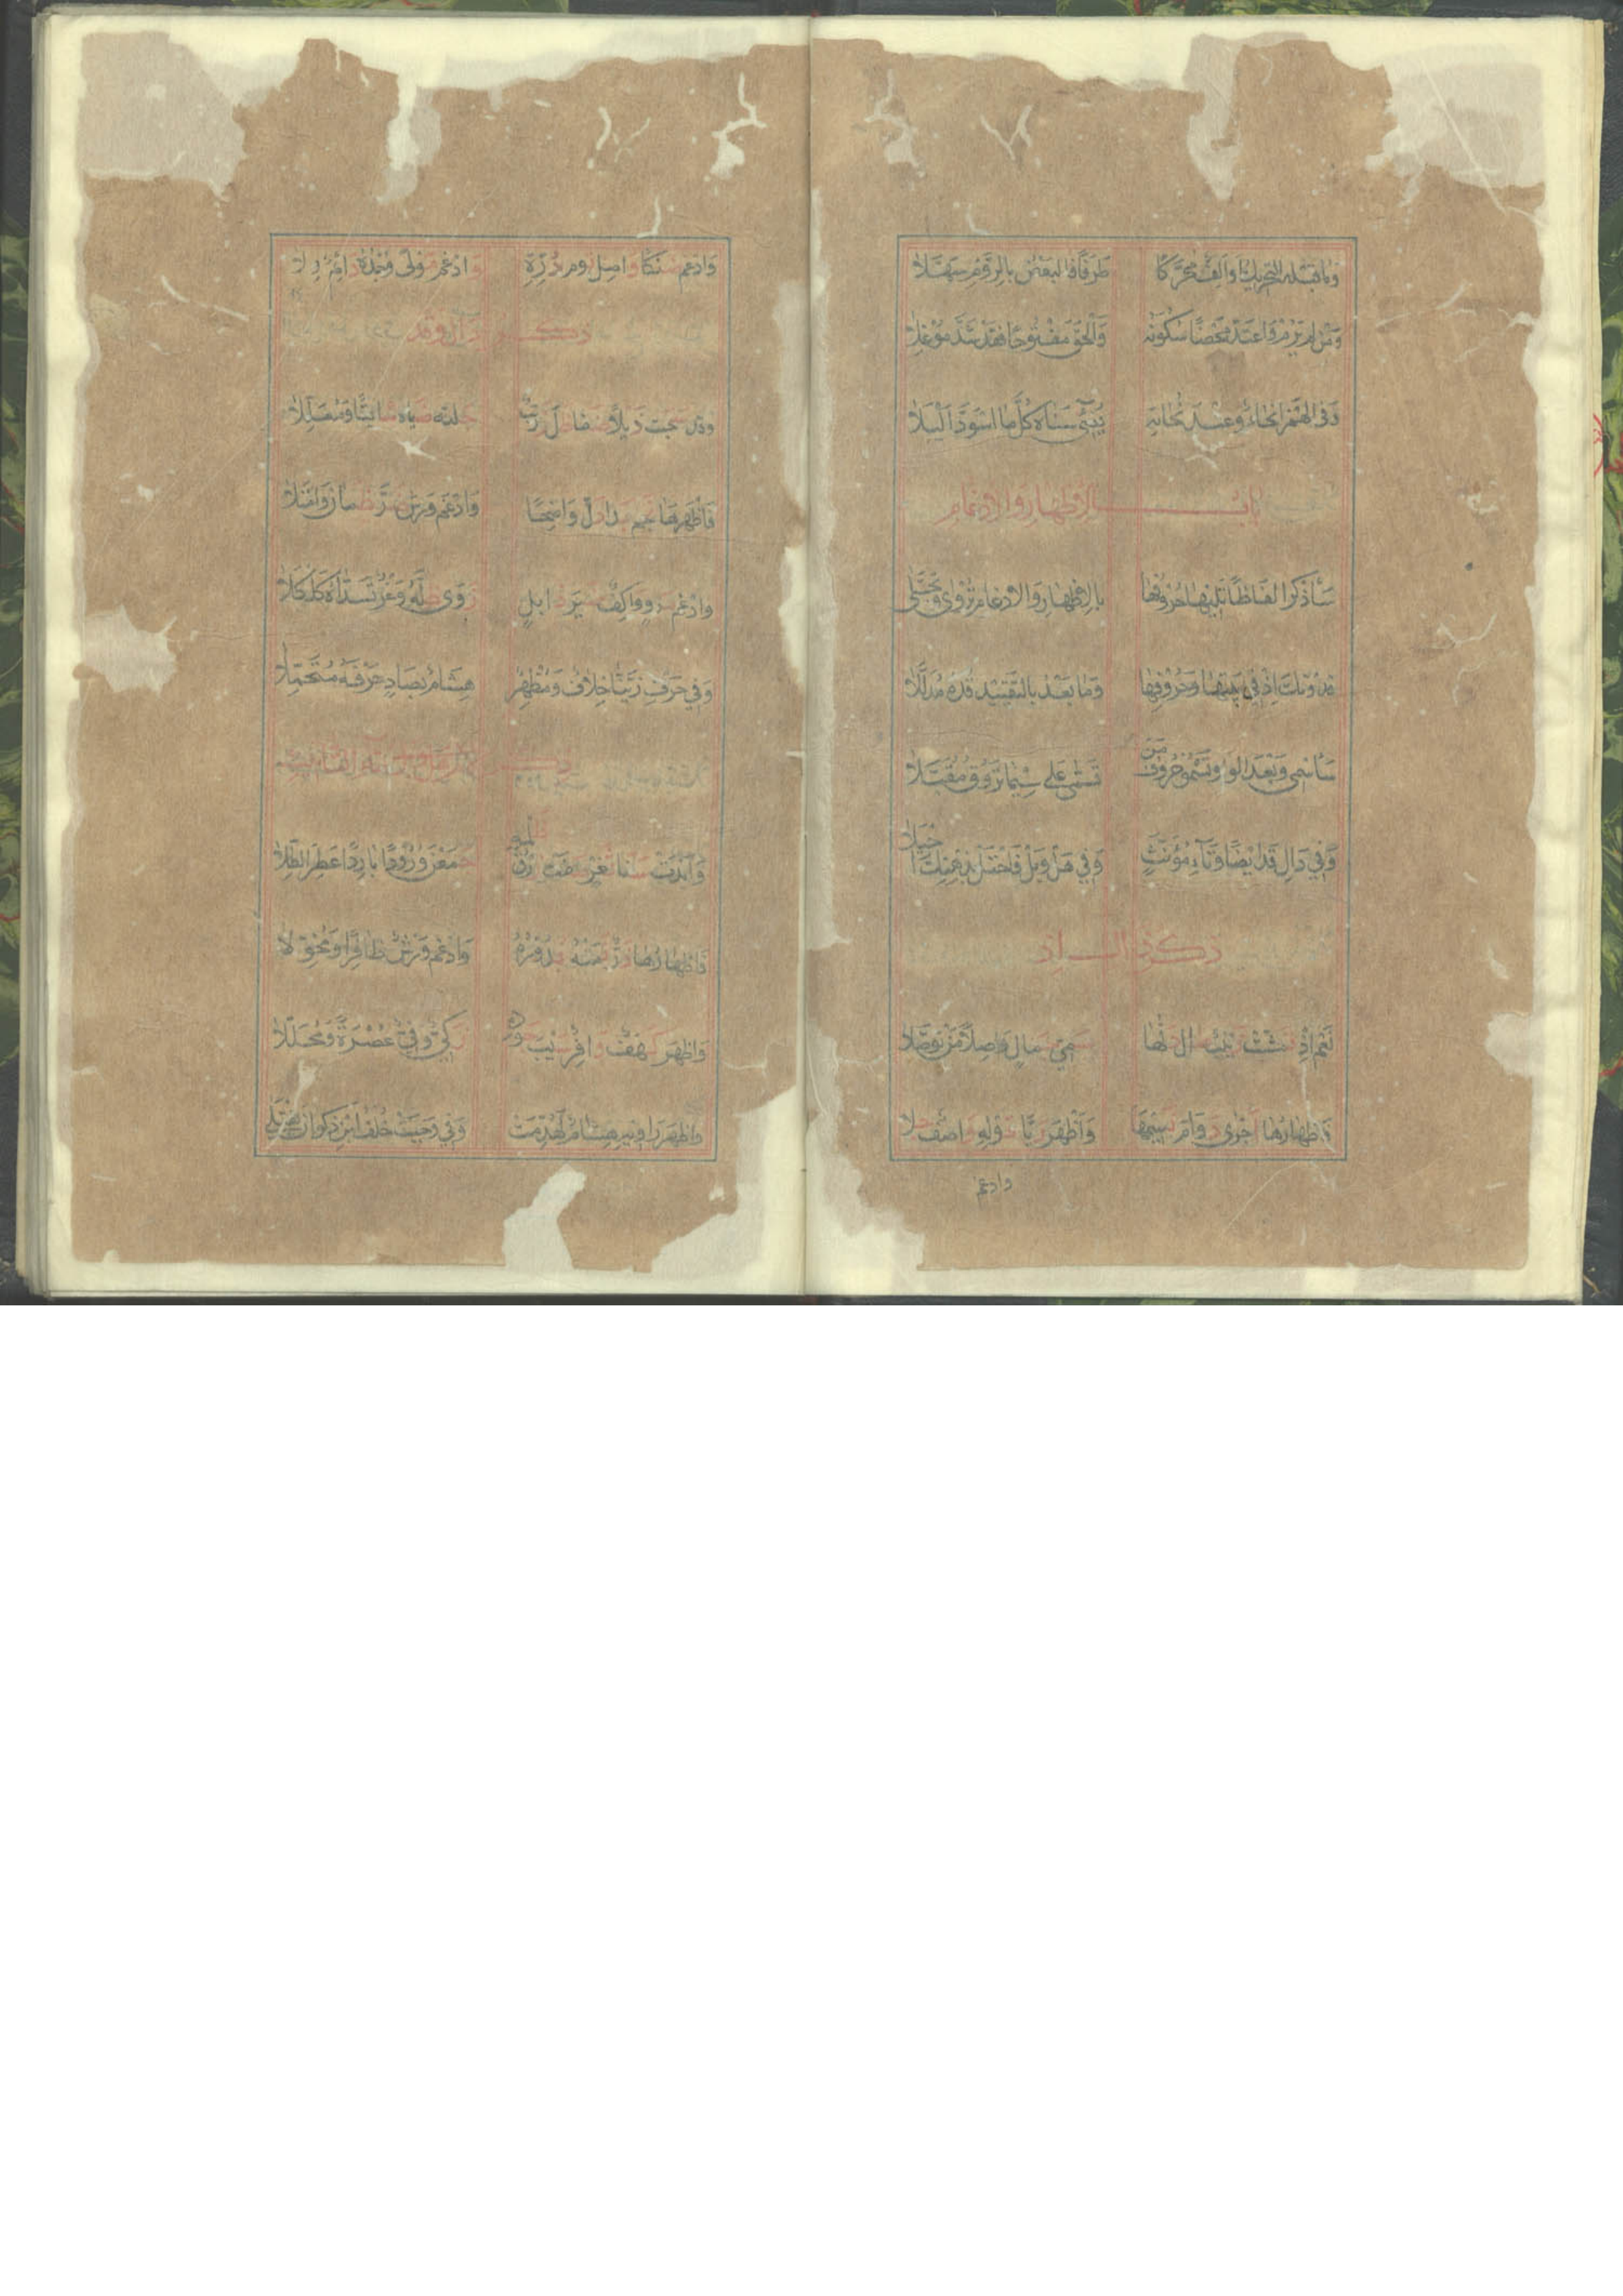 وما قبله التحريك او الف محركا طرفا فالبعض بالروم سهلا
ومن لم يرم واعتد محضا سكونه والحق مفتوحا فقد شذ موغلا
وفى الهمز انحاء وعند نحاته يضئ سناه كلما اسود اليلا
باب الاظهار والادغام
سأذكر الفاظا تليها حروفها بالاظهار والادغام تروى وتجتلى
فدونك اذ فى بيتها وحروفها وما بعد بالتقييد قده مذللا
سأسمى وبعد الواو تسمو حروف من تسمى على سيما تروق مقبلا
وفي دال قد ايضا وتاء مؤنث وفي هل وبل فاحتل بذهنك احيلا
ذكر ذال اذ
نعم اذ تمشت زينب صال دلها سمي جمال واصلا من توصلا
فاظهارها اجرى دوام نسيمها واظهر ريا قوله واصف جلا
وادغم
وادغم ضنكا واصل توم دره وادغم مولى وجده دائم ولا
ذكر دال قد
وقد سحبت ذيلا ضفا ظل زرنب جلته صباه شائقا ومعللا
فاظهرها نجم بدا دل واضحا وادغم ورش ضر ظمان وامتلا
وادغم مرو واكف ضير ذابل زوى ظله وغر تسداه كلكلا
وفي حرف زينا خلاف ومظهر هشام بصاد حرفه متحملا
ذكر تاء التأنيث
وابدت سنا ثغر صفت زرق ظلمه جمعن ورودا باردا عطر الطلا
فاظهارها در نمته بدوره وادغم ورش ظافرا ومخولا
واظهر كهف وافر سيب جوده زكي وفي عصرة ومحللا
واظهر راويه هشام لهدمت وفي وجبت خلف ابن ذكوان يفتلى